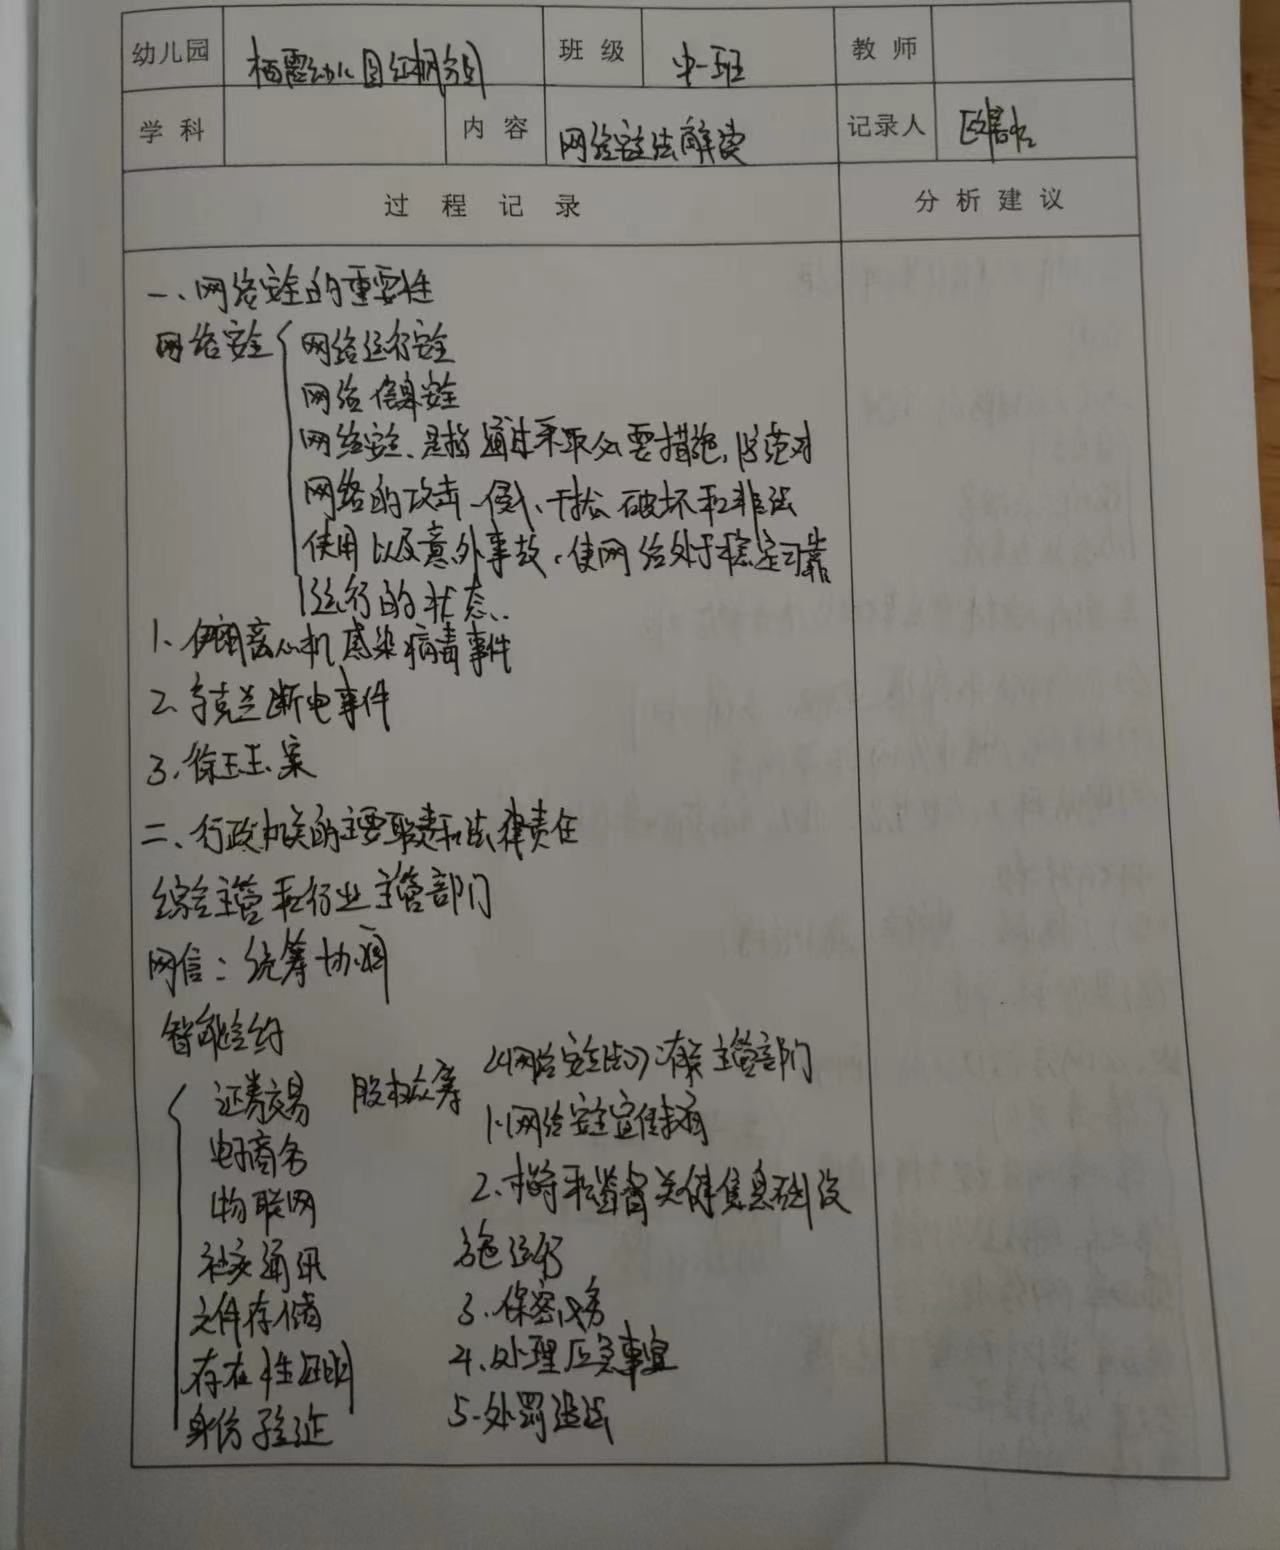 幼儿园 栖霞幼儿园红枫分园 班级 中一班 教师
学科 内容 网络安全法解读 记录人
过程记录 分析建议
一、网络安全的重要性
网络安全 网络运行安全
网络信息安全
网络安全、是指通过采取必要措施,防范对
网络的攻击、侵入、干扰、破坏和非法
使用以及意外事故,使网络处于稳定可靠
运行的状态..
1、伊朗离心机感染病毒事件
2、乌克兰断电事件
3、徐玉玉案
二、行政机关的主要职责和法律责任
综合主管和行业主管部门
网信:统筹协调
智能合约
证券交易 股权众筹
电子商务
物联网
社交通讯
文件存储
存在性证明
身份验证
《网络安全法》有关主管部门
1、网络安全宣传教育
2、指导和监督关键信息基础设
施运行
3、保密义务
4、处理应急事宜
5、处罚违法